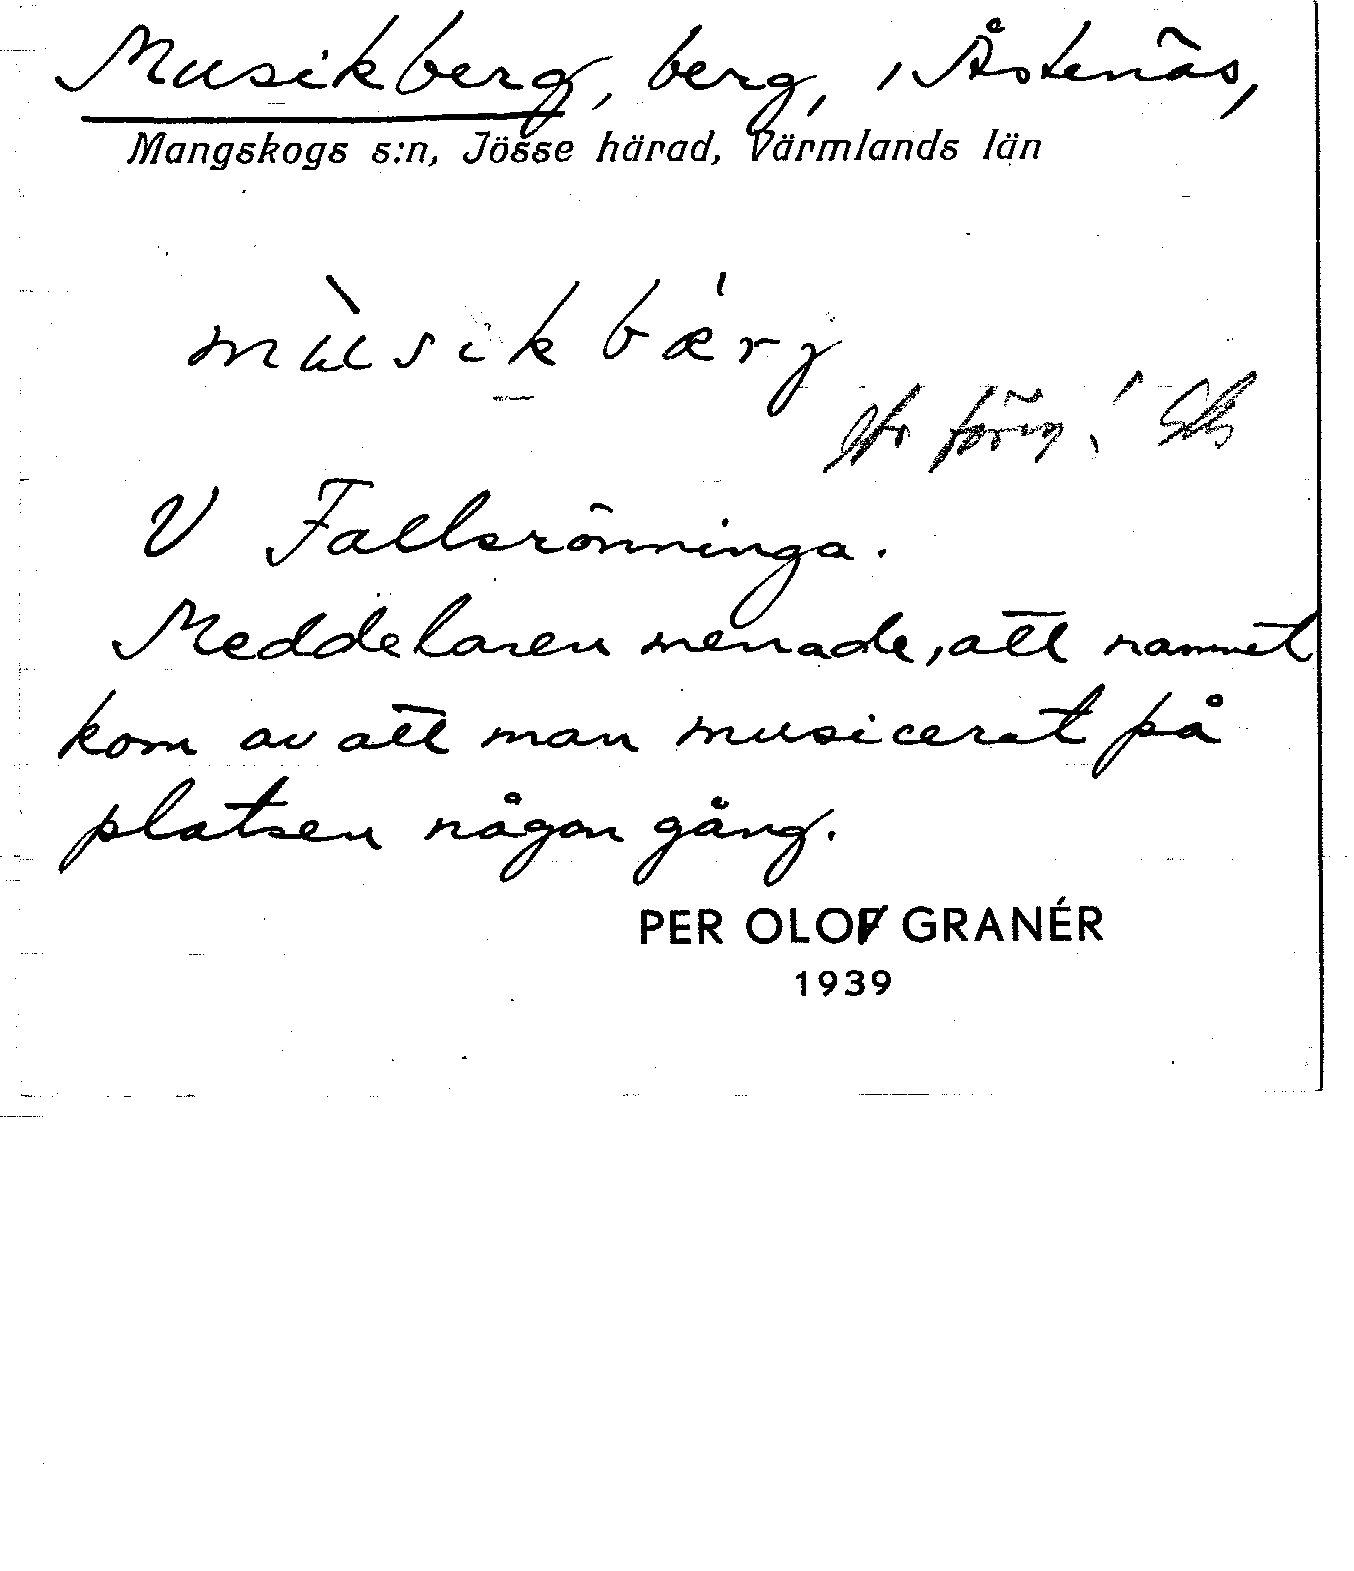 Musikberg, berg, i Åstenäs,
Mangskogs s:n, Jösse härad, Värmlands län
mùsikbǽrj
V Fallsrönninga.
Meddelaren menade, att namnet
kom av att man musicerat på
platsen någon gång.
PER OLOF GRANÉR
1939